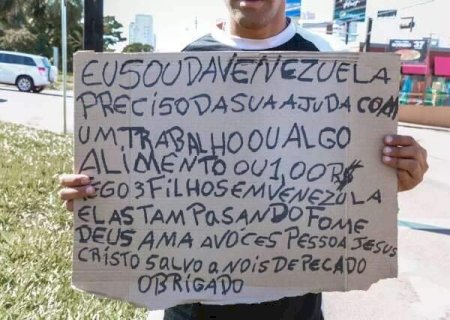 EU SOU DA VENEZUELA
PRECISO DA SUA AJUDA COM
UM TRABALHO OU ALGO
ALIMENTO OU 1,00 R$
TEGO 3 FILHOS EM VENEZUELA
ELAS TAM PASANDO FOME
DEUS AMA A VOCES PESSOA JESUS
CRISTO SALVO A NOIS DE PECADO
OBRIGADO